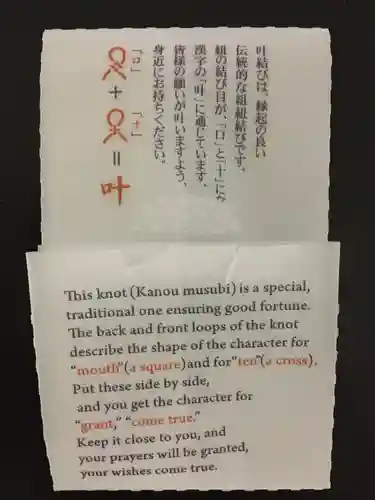 叶結びは、縁起の良い
伝統的な組紐結びです。
紐の結び目が、「口」と「十」に
漢字の「叶」に通じています。
皆様の願いが叶いますよう、
身近にお持ちください。
「口」 「十」
+ = 叶
This knot (Kanou musubi) is a special,
traditional one ensuring good fortune.
The back and front loops of the knot
describe the shape of the character for
“mouth”(a square)and for“ten”(a cross).
Put these side by side,
and you get the character for
“grant,” “come true.”
Keep it close to you, and
your prayers will be granted,
your wishes come true.